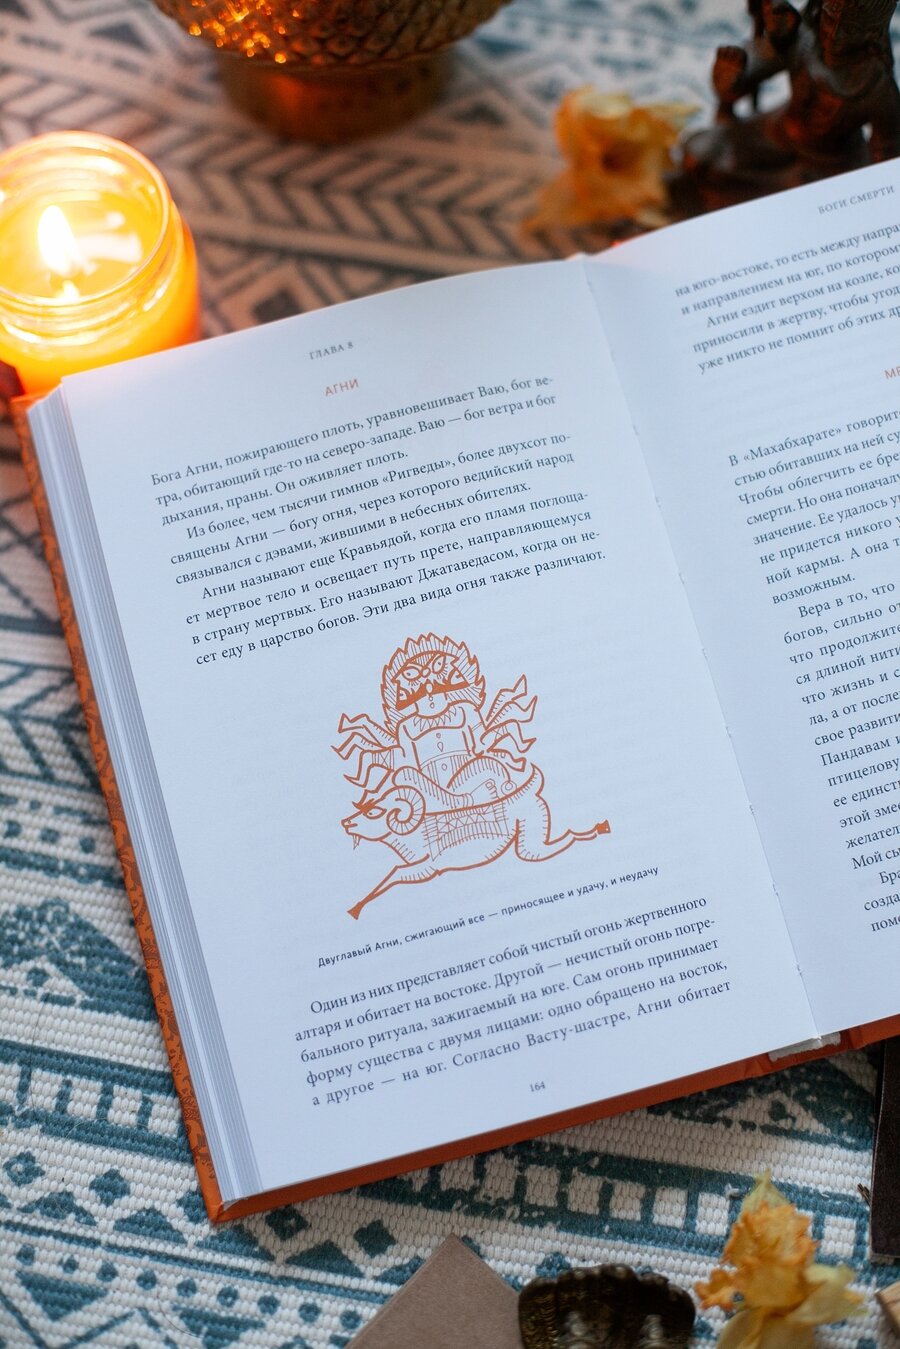 ГЛАВА 8
АГНИ
Бога Агни, пожирающего плоть, уравновешивает Ваю, бог ве-
тра, обитающий где-то на северо-западе. Ваю — бог ветра и бог
дыхания, праны. Он оживляет плоть.
Из более, чем тысячи гимнов «Ригведы», более двухсот по-
священы Агни — богу огня, через которого ведийский народ
связывался с дэвами, жившими в небесных обителях.
Агни называют еще Кравьядой, когда его пламя поглоща-
ет мертвое тело и освещает путь прете, направляющемуся
в страну мертвых. Его называют Джатаведасом, когда он не-
сет еду в царство богов. Эти два вида огня также различают.
Двуглавый Агни, сжигающий все — приносящее и удачу, и неудачу
Один из них представляет собой чистый огонь жертвенного
алтаря и обитает на востоке. Другой — нечистый огонь погре-
бального ритуала, зажигаемый на юге. Сам огонь принимает
форму существа с двумя лицами: одно обращено на восток,
а другое — на юг. Согласно Васту-шастре, Агни обитает
164
БОГИ СМЕРТИ
на юго-востоке, то есть между напра
и направлением на юг, по котором
Агни ездит верхом на козле, ко
приносили в жертву, чтобы угод
уже никто не помнит об этих др
В «Махабхарате» говорит
стью обитавших на ней су
Чтобы облегчить ее бре
смерти. Но она поначалу
значение. Ее удалось у
не придется никого у
ной кармы. А она т
возможным.
Вера в то, что
богов, сильно от
что продолжите
ся длиной нити
что жизнь и с
ла, а от после
свое развити
Пандавам и
птицелову
ее единст
этой змее
желател
Мой сы
Бра
созда
поме